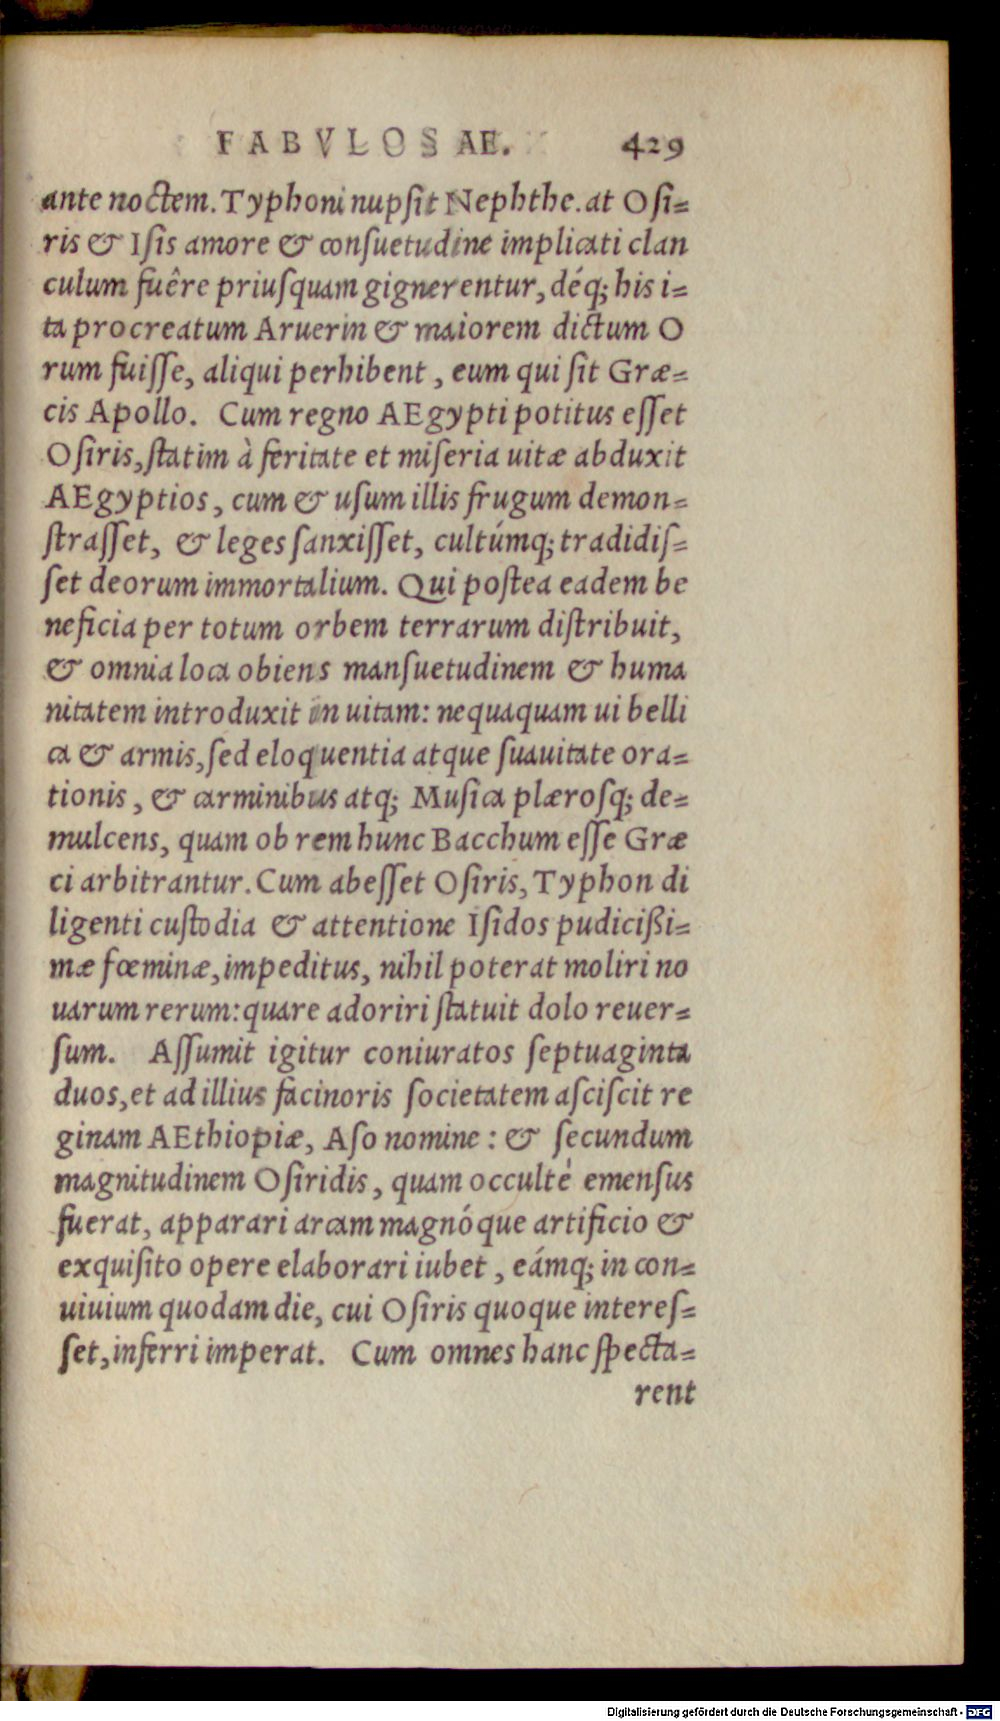 FABVLOSAE. 429
ante noctem. Typhoni nupsit Nephthe. at Osi=
ris & Isis amore & consuetudine implicati clan
culum fuêre priusquam gignerentur, déq; his i=
ta procreatum Aruerin & maiorem dictum O
rum fuisse, aliqui perhibent, eum qui sit Græ=
cis Apollo. Cum regno AEgypti potitus esset
Osiris, statim à feritate et miseria uitæ abduxit
AEgyptios, cum & usum illis frugum demon=
strasset, & leges sanxisset, cultúmq; tradidis=
set deorum immortalium. Qui postea eadem be
neficia per totum orbem terrarum distribuit,
& omnia loca obiens mansuetudinem & huma
nitatem introduxit in uitam: nequaquam ui belli
ca & armis, sed eloquentia atque suauitate ora=
tionis, & carminibus atq; Musica plærosq; de=
mulcens, quam ob rem hunc Bacchum esse Græ
ci arbitrantur. Cum abesset Osiris, Typhon di
ligenti custodia & attentione Isidos pudicißi=
mæ fœminæ, impeditus, nihil poterat moliri no
uarum rerum: quare adoriri statuit dolo reuer=
sum. Assumit igitur coniuratos septuaginta
duos, et ad illius facinoris societatem asciscit re
ginam AEthiopiæ, Aso nomine: & secundum
magnitudinem Osiridis, quam occultè emensus
fuerat, apparari arcam magnóque artificio &
exquisito opere elaborari iubet, eámq; in con=
uiuium quodam die, cui Osiris quoque interes=
set, inferri imperat. Cum omnes hanc specta=
rent
Digitalisierung gefördert durch die Deutsche Forschungsgemeinschaft - DFG